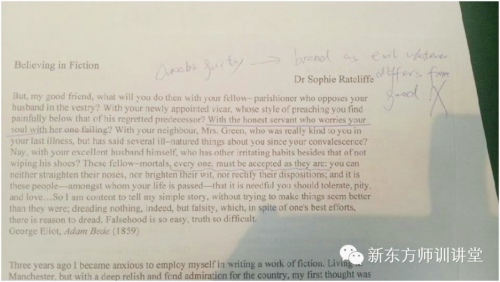 Believing in Fiction
Dr Sophie Ratcliffe
brand as evil whatever
differs from
good
But, my good friend, what will you do then with your fellow-parishioner who opposes your
husband in the vestry? With your newly appointed vicar, whose style of preaching you find
painfully below that of his regretted predecessor? With the honest servant who worries your
soul with her one failing? With your neighbour, Mrs. Green, who was really kind to you in
your last illness, but has said several ill-natured things about you since your convalescence?
Nay, with your excellent husband himself, who has other irritating habits besides that of not
wiping his shoes? These fellow-mortals, every one, must be accepted as they are: you can
neither straighten their noses, nor brighten their wit, nor rectify their dispositions; and it is
these people—amongst whom your life is passed—that it is needful you should tolerate, pity,
and love...So I am content to tell my simple story, without trying to make things seem better
than they were; dreading nothing, indeed, but falsity, which, in spite of one's best efforts,
there is reason to dread. Falsehood is so easy, truth so difficult.
George Eliot, Adam Bede (1859)
Three years ago I became anxious to employ myself in writing a work of fiction. Living in
Manchester, but with a deep relish and fond admiration for the country, my first thought was
新东方师训讲堂